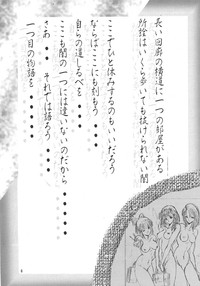 長い回廊の横道に一つの部屋がある
所詮はいくら歩いても抜けられない闇
ここでひと休みするのもいいだろう
ならばここにも刻もう
自らの道しるべを・・・・・
ここも闇の一つには違いないのだから
さあ・・・それでは語ろう
一つ目の物語を・・・・・